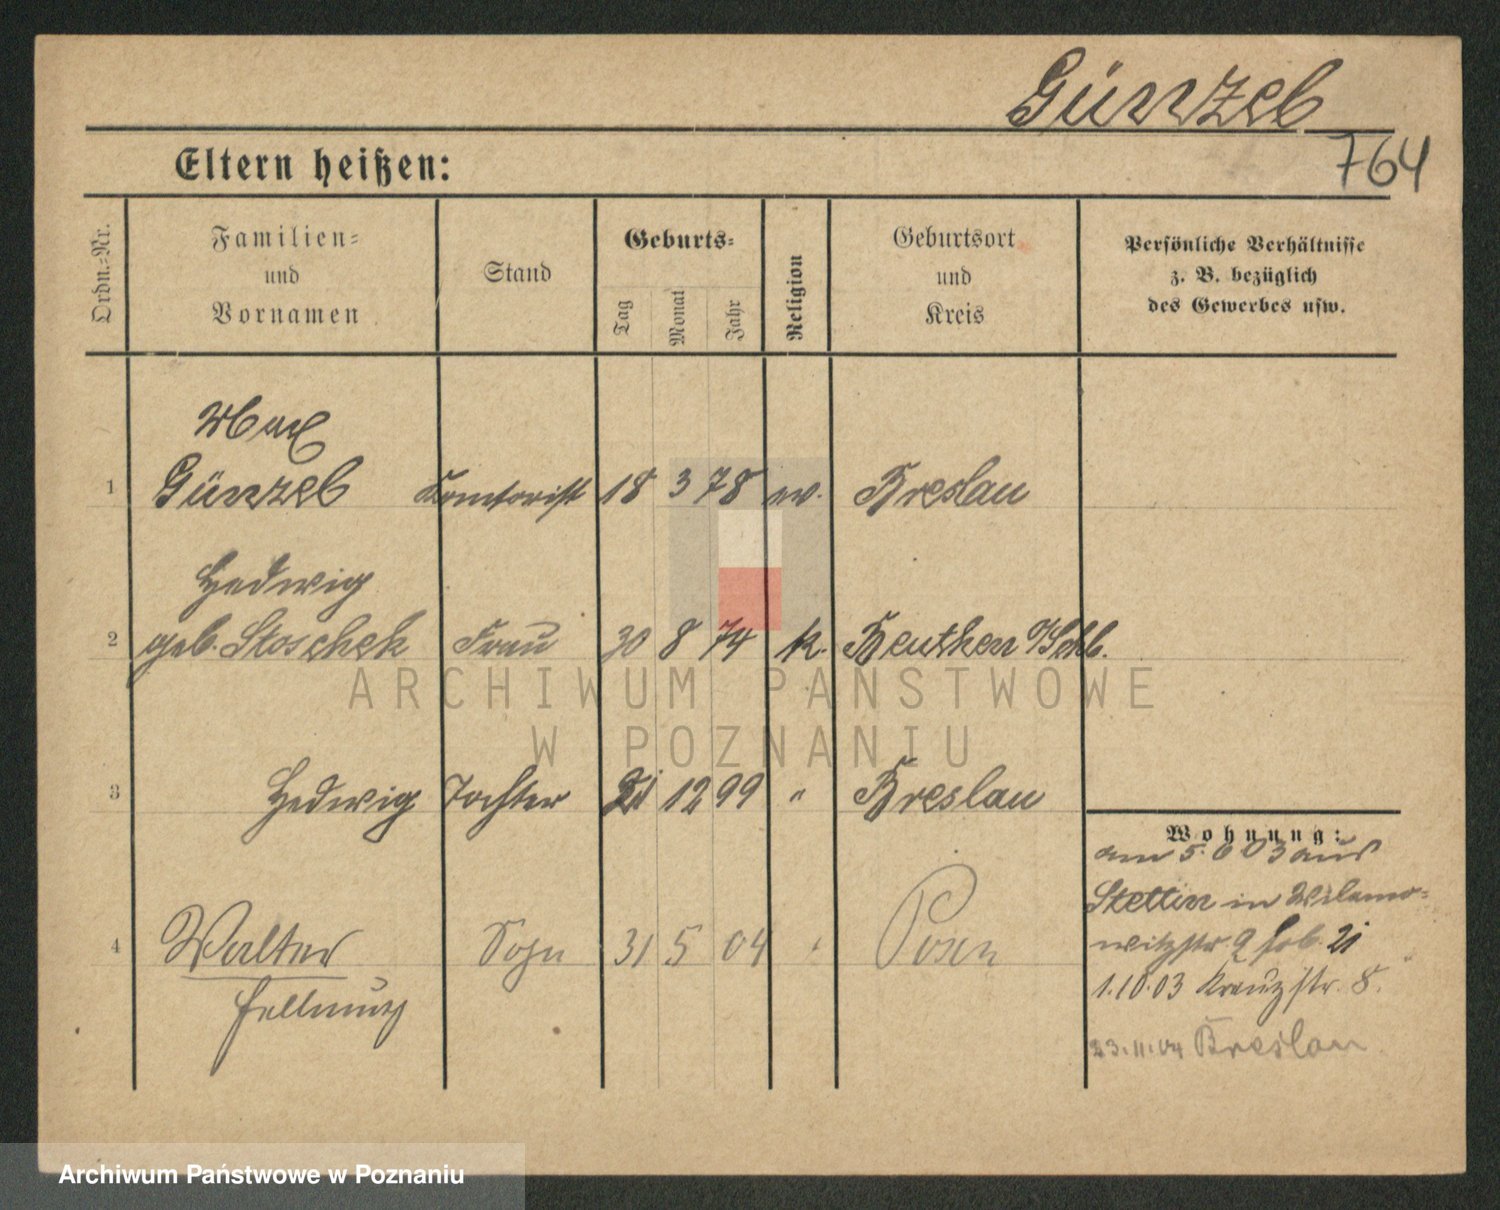 Günzel
764
Eltern heißen:
Ordn.-Nr.
Familien-
und
Vornamen
Stand
Geburts-
Tag
Monat
Jahr
Religion
Geburtsort
und
Kreis
Persönliche Verhältnisse
z. B. bezüglich
des Gewerbes usw.
Max
1 Günzel Kontorist 18 3 78 ev. Breslau
Hedwig
2 geb. Stoschek Frau 30 8 74 k. Beuthen O/Schl.
ARCHIWUM PAŃSTWOWE
W POZNANIU
3 Hedwig Tochter 21 12 99 " Breslau
Wohnung:
am 5.6 03 aus
Stettin in Wilamo-
witzstr. 9
4 Walter Sohn 31 5 04 " Posen
Hellmuth
1.10.03 Kreuzstr. 8.
23.11.04 Breslau
Archiwum Państwowe w Poznaniu